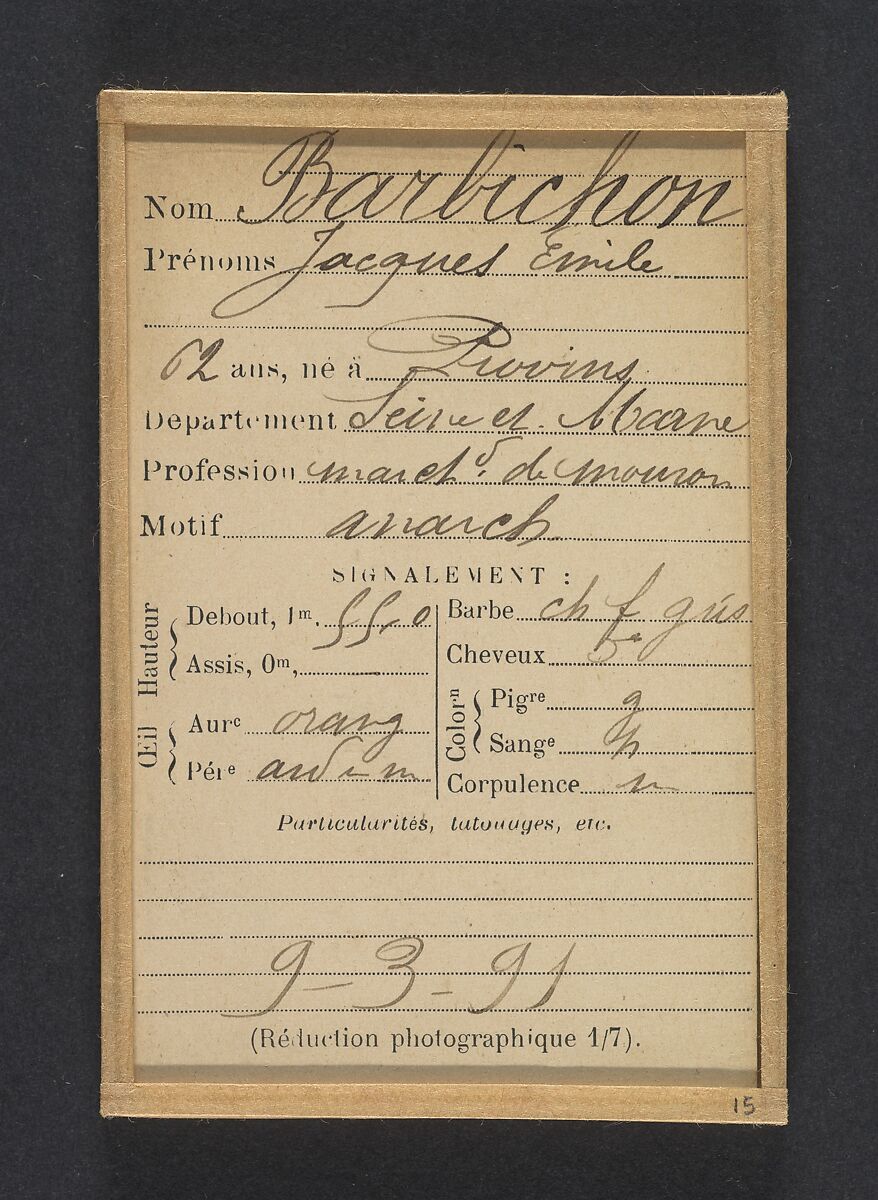 Nom Barbichon
Prénoms Jacques Emile
62 ans, né à Provins
Département Seine et. Marne
Profession march^d. de mouron
Motif anarch.
SIGNALEMENT :
Hauteur
Debout, 1^m, 55,0
Assis, 0^m,
Œil
Aur^e orang
Pér^e ard - m
Barbe ch f gris
Cheveux d°
Color^n
Pig^re g
Sang^e p
Corpulence m
Particularités, tatouages, etc.
9-3-91
(Réduction photographique 1/7).
15